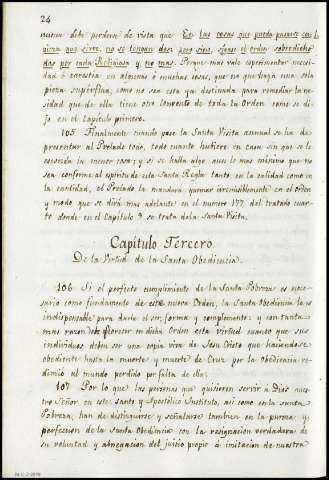 24
nunca debe perderse de vista que En las cosas que puede pasarse con la
pieza que sirve, no se tengan dos; pero sino, sigase el orden sobredicho
das por cada Religiosa y no mas. Porque mas vale esperimentar necesi-
dad ó carestía en algunas ó muchas cosas, que no que haya una sola
pieza supérflua, como no sea esta ya destinada para remediar la ne-
sidad que de ella tiene otro convento de toda la Orden como se di-
jo en el Capitulo primero.
105 Finalmente cuando pase la Santa Visita annual se ha de
presentar al Prelado todo, todo cuanto hubiere en casa sin que se le
esconda la menor cosa; y si se halla algo aun lo mas minimo que no
sea conforme al espiritu de esta Santa Regla tanto en la calidad como en
la cantidad, el Prelado la mandará quemar irremisiblemente en el orden
y modo que se dirá mas adelante en el numero 177 del tratado cuar-
to donde en el Capitulo 9 se trata de la Santa Visita.
Capitulo Tercero
De la Virtud de la Santa Obediencia.
106 Si el perfecto cumplimiento de la Santa Pobreza es nece-
sario como fundamento de este nuevo Orden, la Santa Obediencia lo es
indispensable para darle el ser, forma y complemento; y con tanta
mas razon debe florecer en dicha Orden esta virtud cuanto que sus
individuos deben ser una copia viva de Jesu Cristo que haciendose
obediente hasta la muerte y muerte de Cruz por la Obediencia re-
dimió al mundo perdido por falta de ella.
107 Por lo que las personas que quisieren servir a Dios nues-
tro Señor en este santo y Apostólico Instituto, asi como en la santa
Pobreza, han de distinguirse y señalarse tambien en la pureza y
perfeccion de la Santa Obediencia con la resignacion verdadera de
su voluntad y abnegacion del juicio propio á imitacion de nuestra